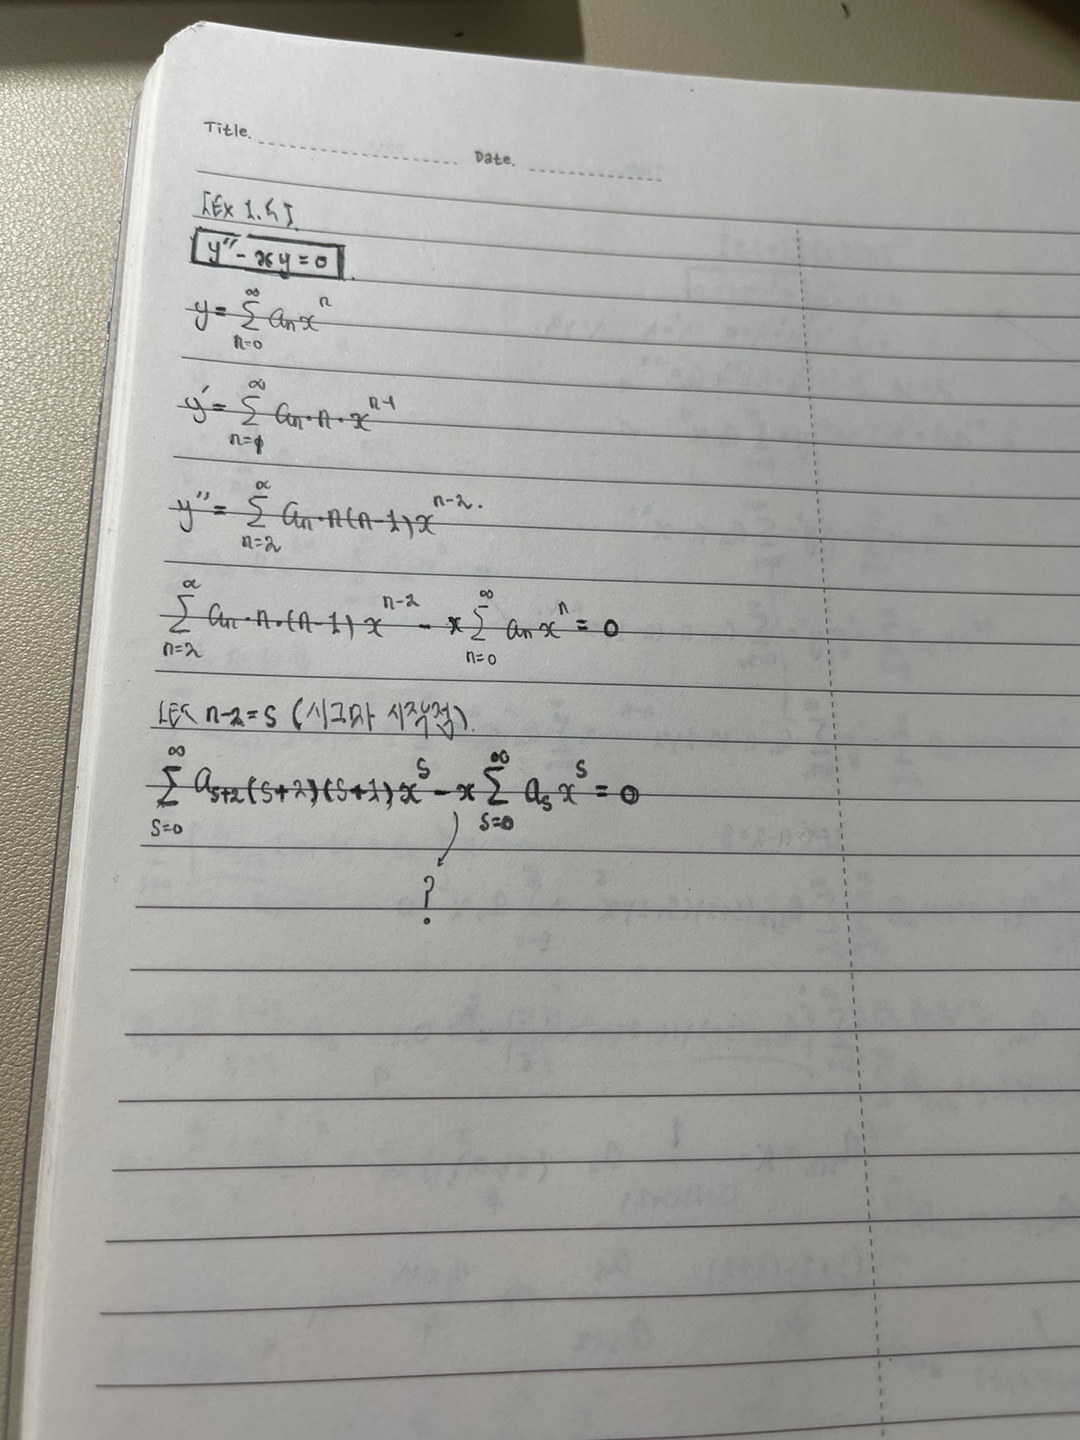 Title.
Date.
[Ex 1.5]
y'' - xy = 0
y = ∑_{n=0}^{∞} a_n x^n
y' = ∑_{n=1}^{∞} a_n · n · x^{n-1}
y'' = ∑_{n=2}^{∞} a_n · n(n-1) x^{n-2}.
∑_{n=2}^{∞} a_n · n · (n-1) x^{n-2} - x ∑_{n=0}^{∞} a_n x^n = 0
LET n-2 = S (시그마 시작점)
∑_{S=0}^{∞} a_{S+2} (S+2)(S+1) x^S - x ∑_{S=0}^{∞} a_S x^S = 0
?